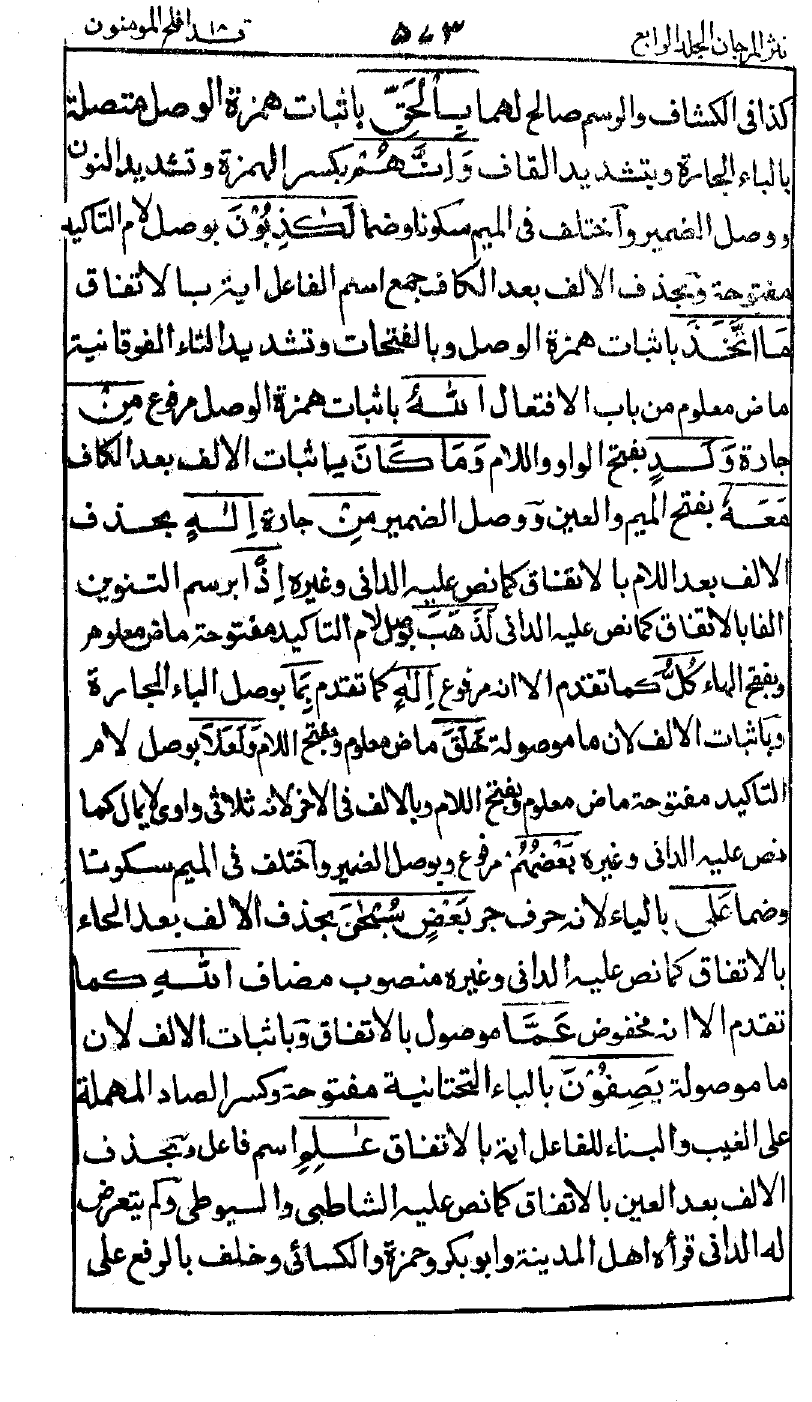 نثر المرجان الجلد الرابع
۵۷۳
قد افلح المومنون ۱۸
كذا فى الكشاف والرسم صالح لهما بِالْحَقِّ باثبات همزة الوصل متصلة
بالباء الجارة وبتشديد القاف وَاِنَّهُمْ بكسر الهمزة وتشديد النون
ووصل الضمير واختلف فى الميم سكونا وضما لَكٰذِبُوْنَ بوصل لام التاكيد
مفتوحة وبحذف الالف بعد الكاف جمع اسم الفاعل اية بالاتفاق
مَا اتَّخَذَ باثبات همزة الوصل وبالفتحات وتشديد التاء الفوقانية
ماض معلوم من باب الافتعال اللّٰهُ باثبات همزة الوصل مرفوع مِنْ
جارة وَلَدٍ بفتح الواو واللام وَمَا كَانَ باثبات الالف بعد الكاف
مَعَهٗ بفتح الميم والعين ووصل الضمير مِنْ جارة اِلٰهٍ بحذف
الالف بعد اللام بالاتفاق كما نص عليه الدانى وغيره اِذًا برسم التنوين
الفا بالاتفاق كما نص عليه الدانى لَذَهَبَ بوصل لام التاكيد مفتوحة ماض معلوم
وبفتح الهاء كُلُّ كما تقدم الا انه مرفوع اِلٰهٍ كما تقدم بِمَا بوصل الباء الجارة
وباثبات الالف لان ما موصولة خَلَقَ ماض معلوم وبفتح اللام وَلَعَلَا بوصل لام
التاكيد مفتوحة ماض معلوم وبفتح اللام وبالالف فى الاخر لانه ثلاثى واوى لايمال كما
نص عليه الدانى وغيره بَعْضُهُمْ مرفوع وبوصل الضمير واختلف فى الميم سكونا
وضما عَلٰى بالياء لانه حرف جر بَعْضٍ سُبْحٰنَ بحذف الالف بعد الحاء
بالاتفاق كما نص عليه الدانى وغيره منصوب مضاف اللّٰهِ كما
تقدم الا انه مخفوض عَمَّا موصول بالاتفاق وباثبات الالف لان
ما موصولة يَصِفُوْنَ بالياء التحتانية مفتوحة وكسر الصاد المهملة
على الغيب والبناء للفاعل اية بالاتفاق عٰلِمِ اسم فاعل وبحذف
الالف بعد العين بالاتفاق كما نص عليه الشاطبى والسيوطى ولم يتعرض
له الدانى قرأه اهل المدينة وابو بكر وحمزة والكسائى وخلف بالرفع على